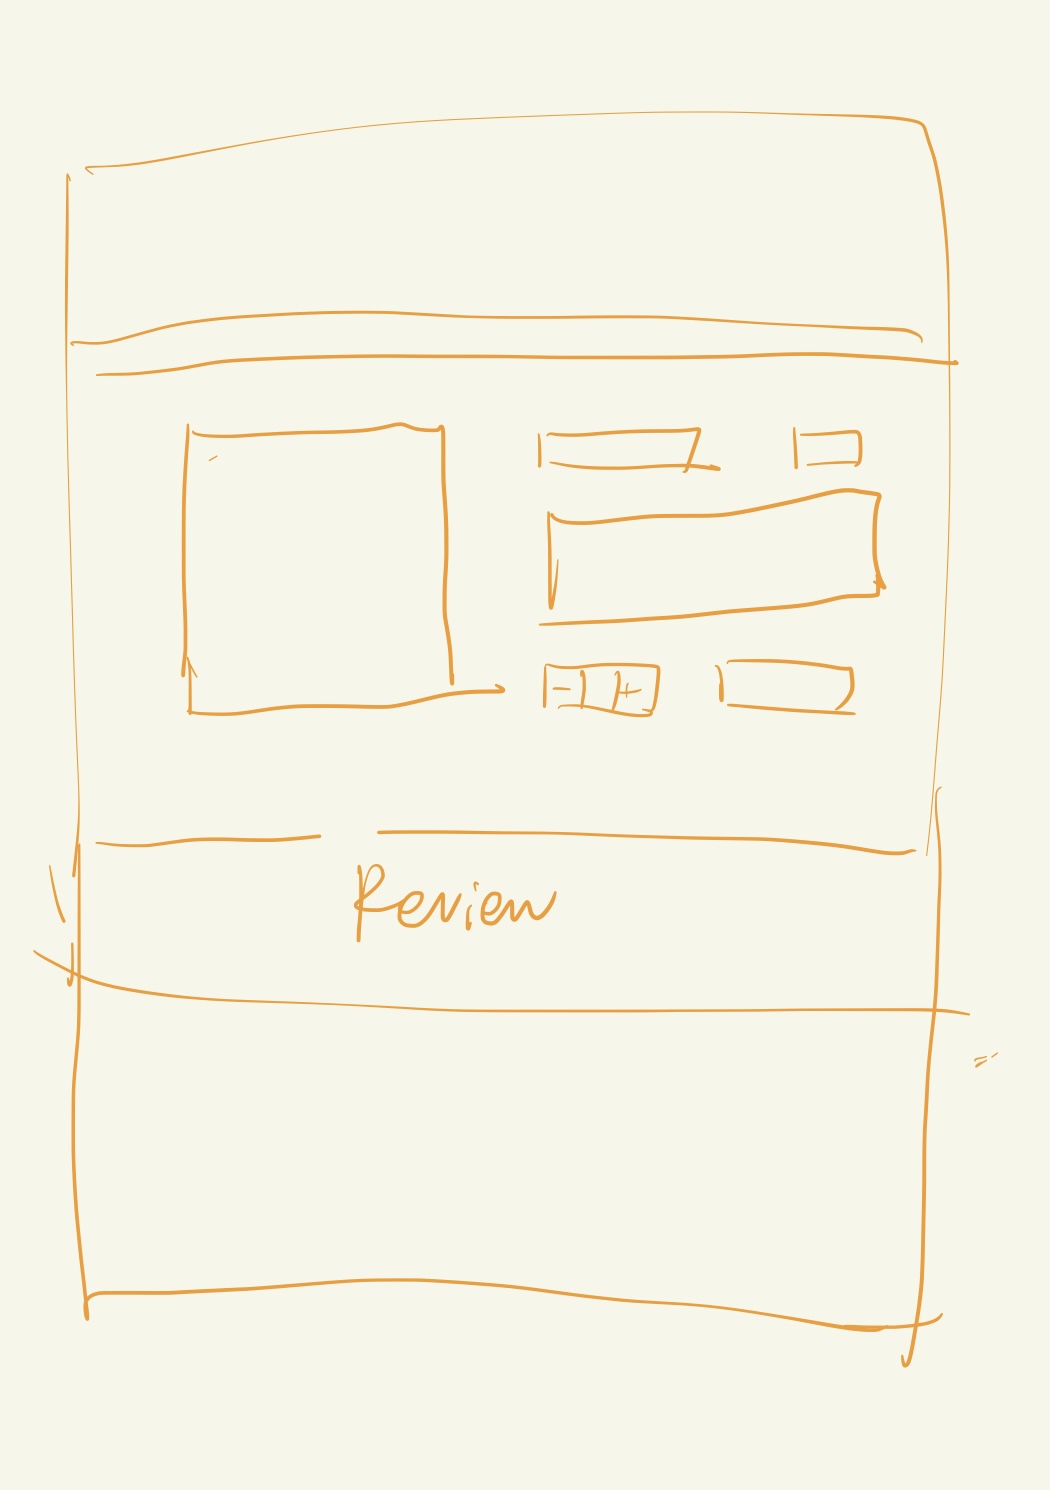 - +
Review